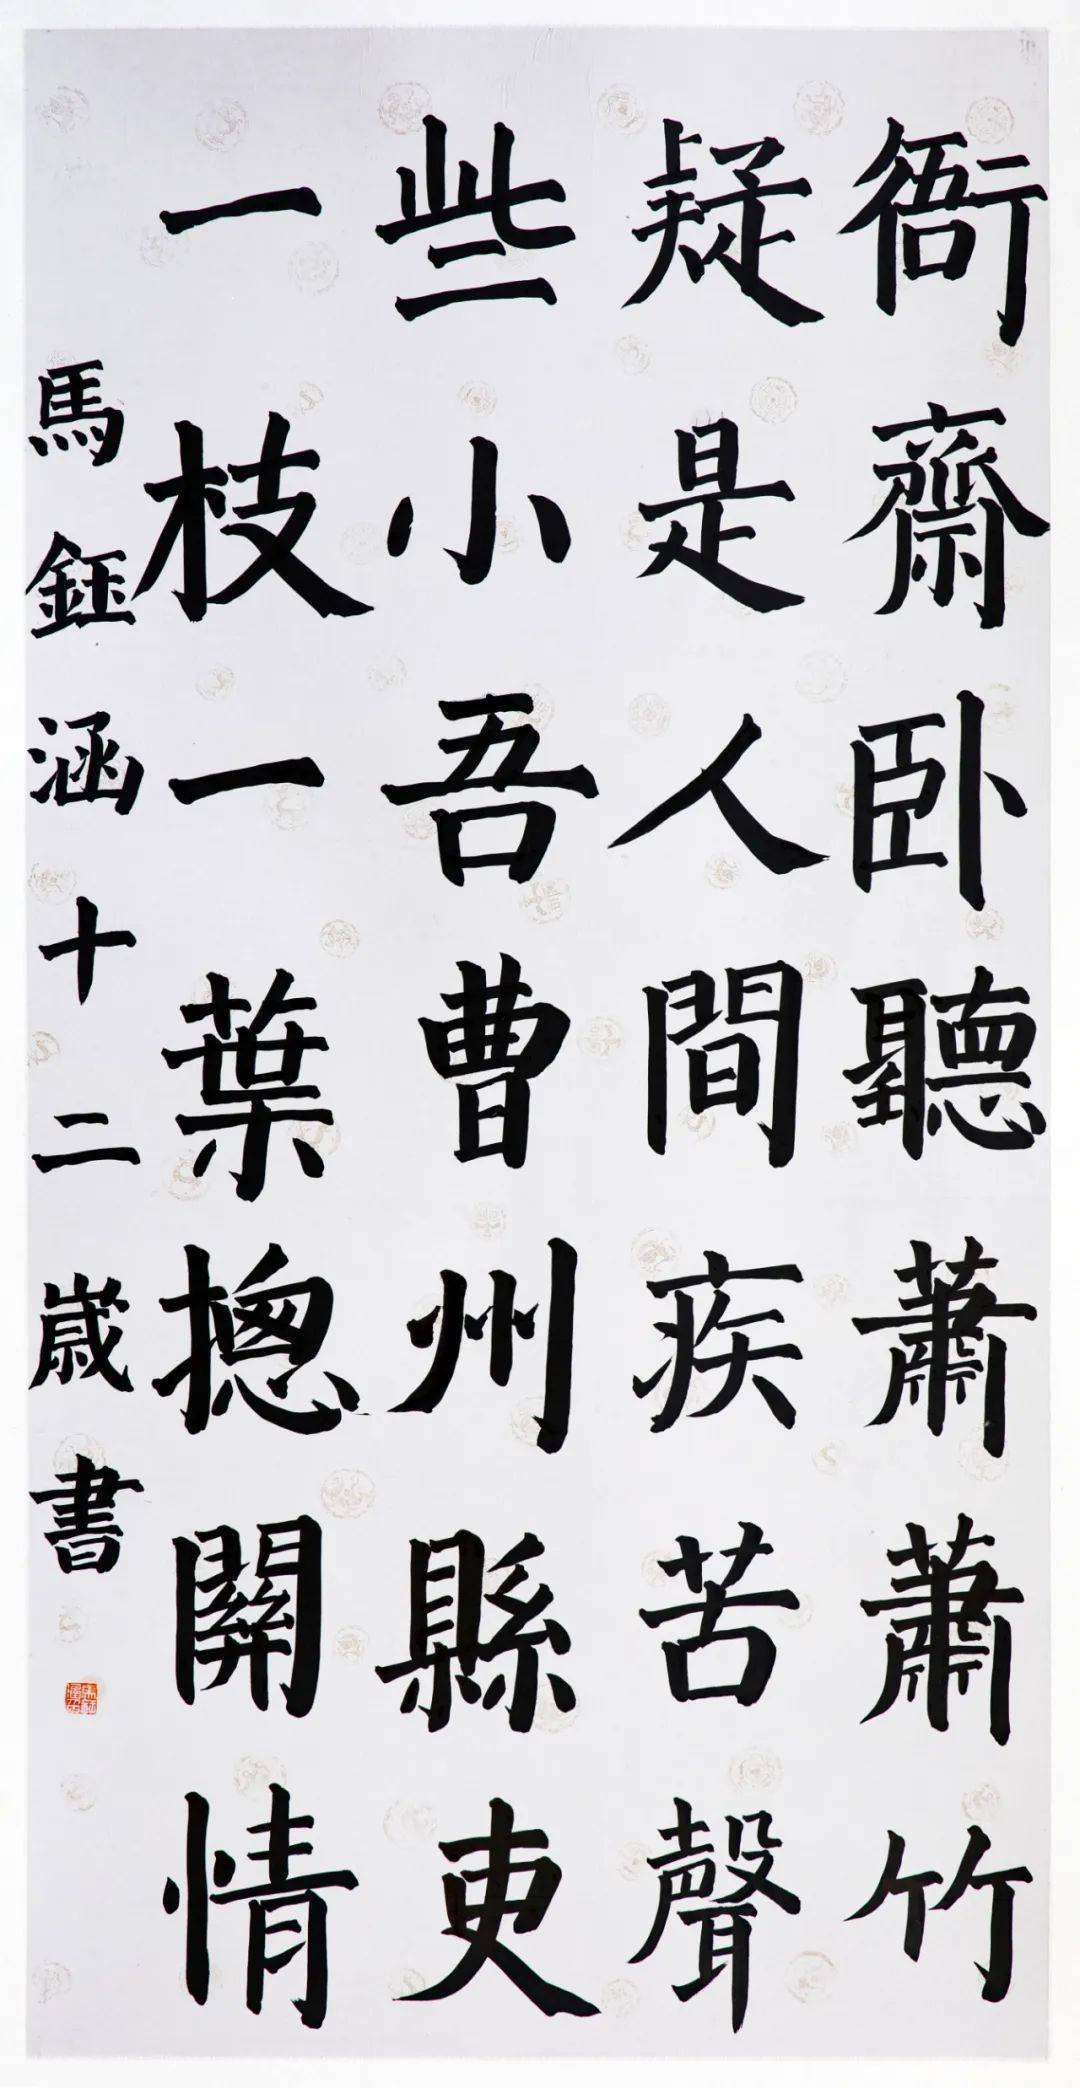 衙齋卧聽蕭蕭竹
疑是人間疾苦聲
些小吾曹州縣吏
一枝一葉摠關情
馬鈺涵十二歲書